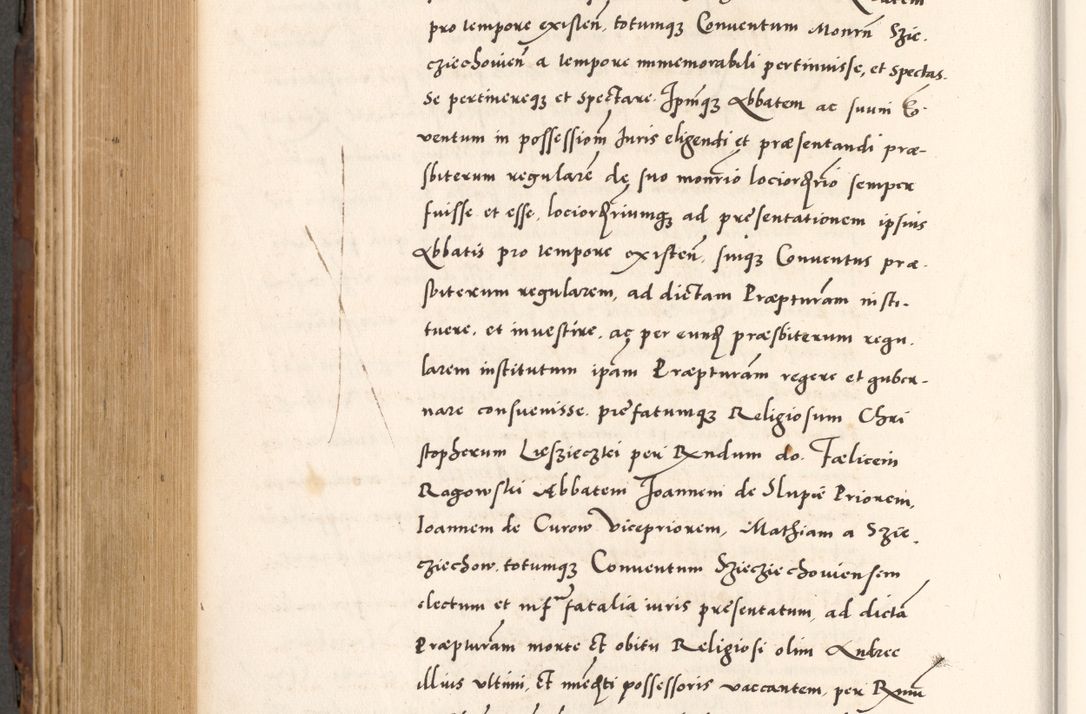 pro tempore existen̄, totumqȝ Conventum Monrn̄ Szie-
cziechovien̄ a tempore immemorabili pertinuisse, et spectas-
se pertinereqȝ et spectare. Ipm̄qȝ Abbatem ac suum Co-
ventum in possessiom̄ Iuris eligendi et præsentandi præ-
sbiterum regularem̄ de suo monrio semper
fuisse et esse, ad presentationem ipsius
Abbatis pro tempore existen̄, suiqȝ Conventus præ-
sbiterum regularem, ad dictam Præpturam̄ insti-
tuere, et investire, ac per eund præsbiterum regu-
larem institutum ipam̄ Præpturam̄ regere et guber-
nare consuevisse. prefatumqȝ Religiosum Chri
stopherum per Rndum do. Fælicem
Ragowski Abbatem Joannem de Slupie Priorem,
Ioannem de Curow Vicepriorem, Mathiam a Szie-
cziechow, totumqȝ Conventum Szieciechoviensem
electum et iuris presentatum, ad dictā
Præpturam̄ morte et obitu Religiosi olim Andree
illius ultimi, et possessoris vaccantem, per Rmū